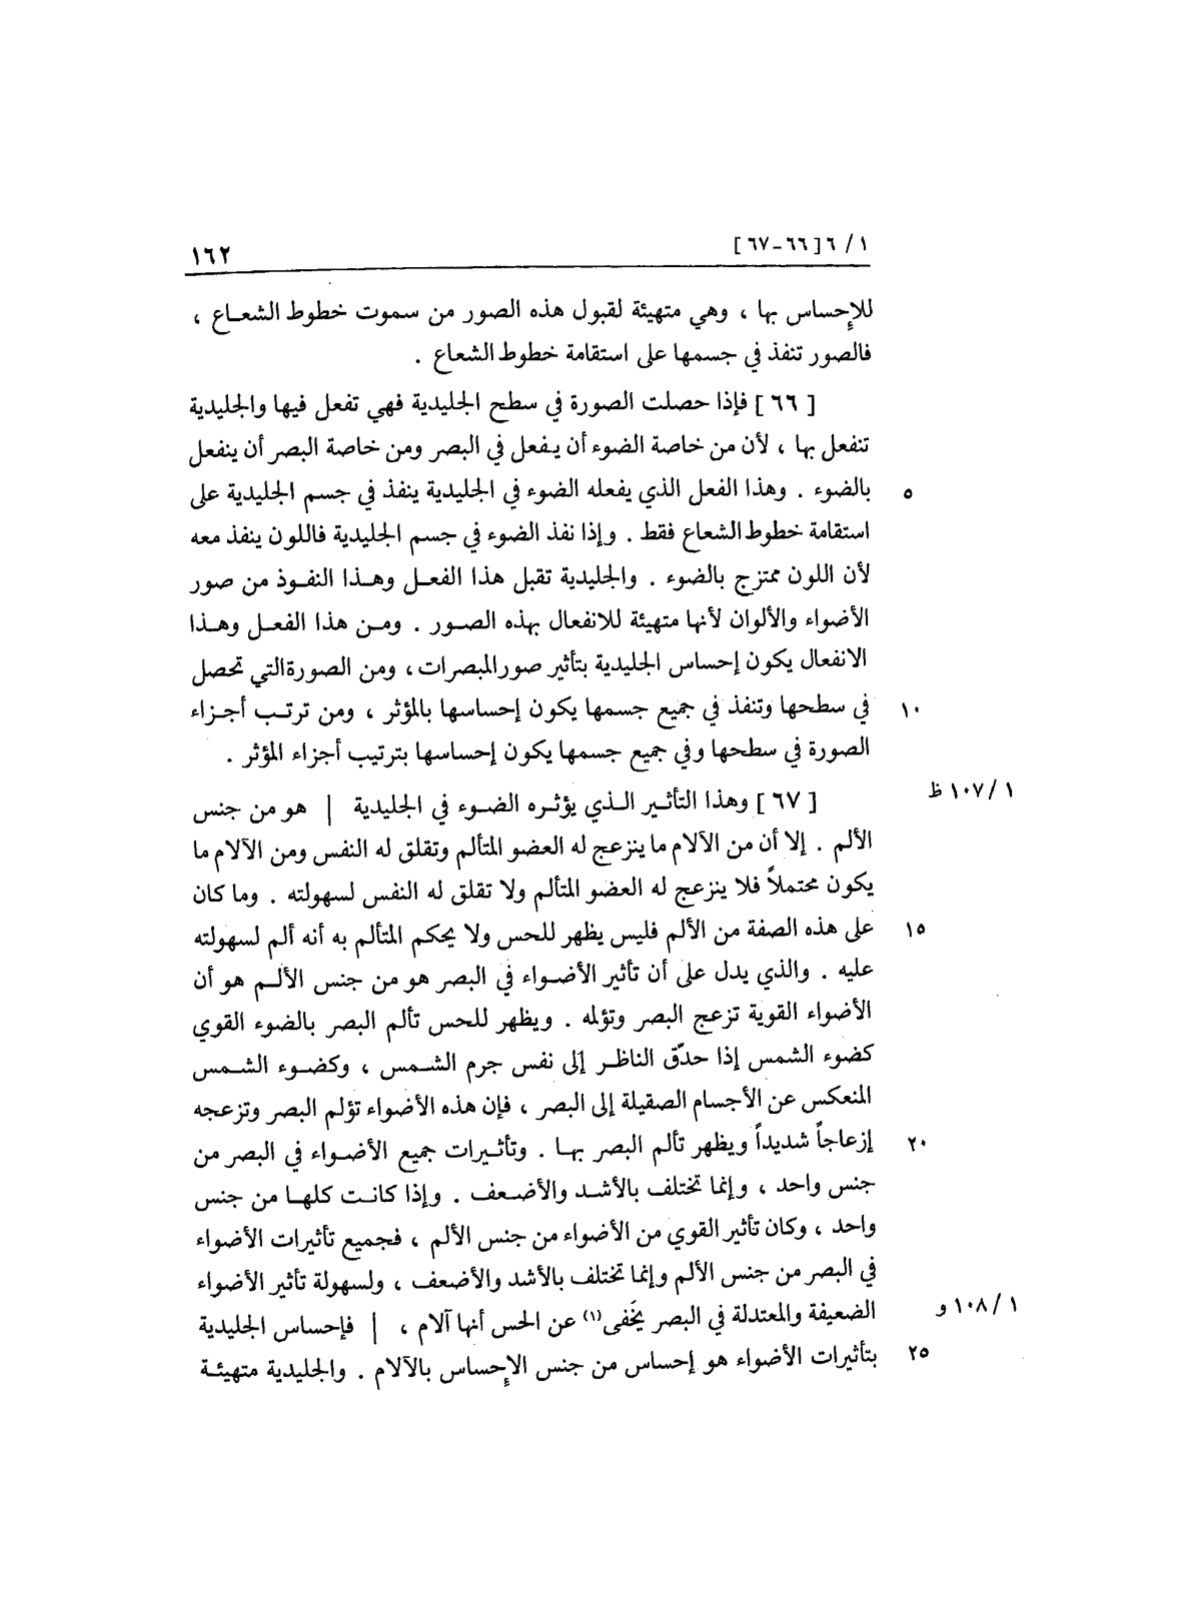 ١ / ٦ [ ٦٦ – ٦٧ ]
١٦٢
للإحساس بها ، وهي متهيئة لقبول هذه الصور من سموت خطوط الشعـاع ،
فالصور تنفذ في جسمها على استقامة خطوط الشعاع .
[ ٦٦ ] فإذا حصلت الصورة في سطح الجليدية فهي تفعل فيها والجليدية
تنفعل بها ، لأن من خاصة الضوء أن يفعل في البصر ومن خاصة البصر أن ينفعل
بالضوء . وهذا الفعل الذي يفعله الضوء في الجليدية ينفذ في جسم الجليدية على
٥
استقامة خطوط الشعاع فقط . وإذا نفذ الضوء في جسم الجليدية فاللون ينفذ معه
لأن اللون ممتزج بالضوء . والجليدية تقبل هذا الفعـل وهـذا النفـوذ من صور
الأضواء والألوان لأنها متهيئة للانفعال بهذه الصـور . ومـن هذا الفعـل وهـذا
الانفعال يكون إحساس الجليدية بتأثير صور المبصرات ، ومن الصورة التي تحصل
في سطحها وتنفذ في جميع جسمها يكون إحساسها بالمؤثر ، ومن ترتـب أجـزاء
١٠
الصورة في سطحها وفي جميع جسمها يكون إحساسها بترتيب أجزاء المؤثر .
[ ٦٧ ] وهذا التأثـير الـذي يؤثـره الضـوء في الجليدية | هو من جنس
١ / ١٠٧ ظ
الألم . إلا أن من الآلام ما ينزعج له العضو المتألم وتقلق له النفس ومن الآلام ما
يكون محتملاً فلا ينزعج له العضو المتألم ولا تقلق له النفس لسهولته . وما كان
على هذه الصفة من الألم فليس يظهر للحس ولا يحكم المتألم به أنه ألم لسهولته
١٥
عليه . والذي يدل على أن تأثير الأضـواء في البصر هو من جنس الألـم هو أن
الأضواء القوية تزعج البصر وتؤلمه . ويظهر للحس تألم البصر بالضوء القوي
كضوء الشمس إذا حدّق الناظـر إلى نفس جرم الشـمس ، وكضـوء الشـمس
المنعكس عن الأجسام الصقيلة إلى البصر ، فإن هذه الأضواء تؤلم البصر وتزعجه
إزعاجاً شديداً ويظهر تألم البصر بهـا . وتأثـيرات جميع الأضـواء في البصر من
٢٠
جنس واحد ، وإنما تختلف بالأشـد والأضـعف . وإذا كانـت كلهـا من جنس
واحد ، وكان تأثير القوي من الأضواء من جنس الألم ، فجميع تأثيرات الأضواء
في البصر من جنس الألم وإنما تختلف بالأشد والأضعف ، ولسهولة تأثير الأضواء
الضعيفة والمعتدلة في البصر يخَفى(١) عن الحس أنها آلام ، | فإحساس الجليدية
١ / ١٠٨ و
بتأثيرات الأضواء هو إحساس من جنس الإحساس بالآلام . والجليدية متهيئـة
٢٥